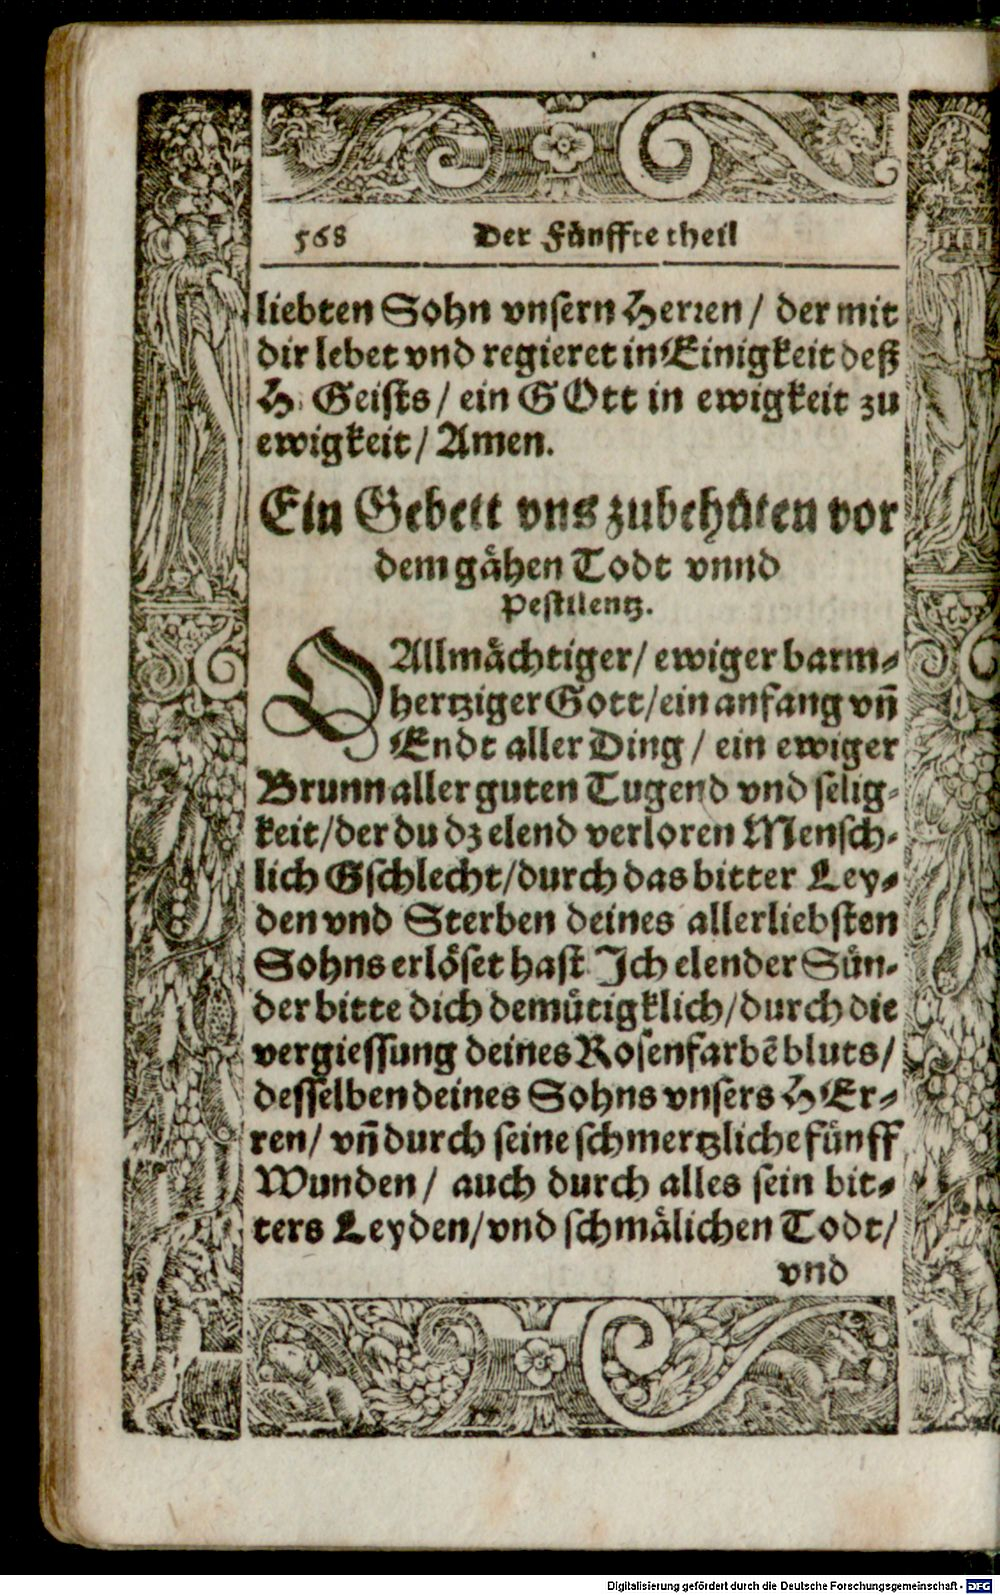 568 Der Fünffte theil
liebten Sohn vnsern Herren / der mit
dir lebet vnd regieret in Einigkeit deß
H. Geists / ein GOtt in ewigkeit zu
ewigkeit / Amen.
Ein Gebett vns zubehüten vor
dem gähen Todt vnnd
Pestilentz.
O Allmächtiger / ewiger barm-
hertziger Gott / ein anfang vñ
Endt aller Ding / ein ewiger
Brunn aller guten Tugend vnd selig-
keit / der du dz elend verloren Mensch-
lich Gschlecht / durch das bitter Ley-
den vnd Sterben deines allerliebsten
Sohns erlöset hast Ich elender Sün-
der bitte dich demütigklich / durch die
vergiessung deines Rosenfarbē bluts /
desselben deines Sohns vnsers HEr-
ren / vñ durch seine schmertzliche fünff
Wunden / auch durch alles sein bit-
ters Leyden / vnd schmälichen Todt /
vnd
Digitalisierung gefördert durch die Deutsche Forschungsgemeinschaft - DFG